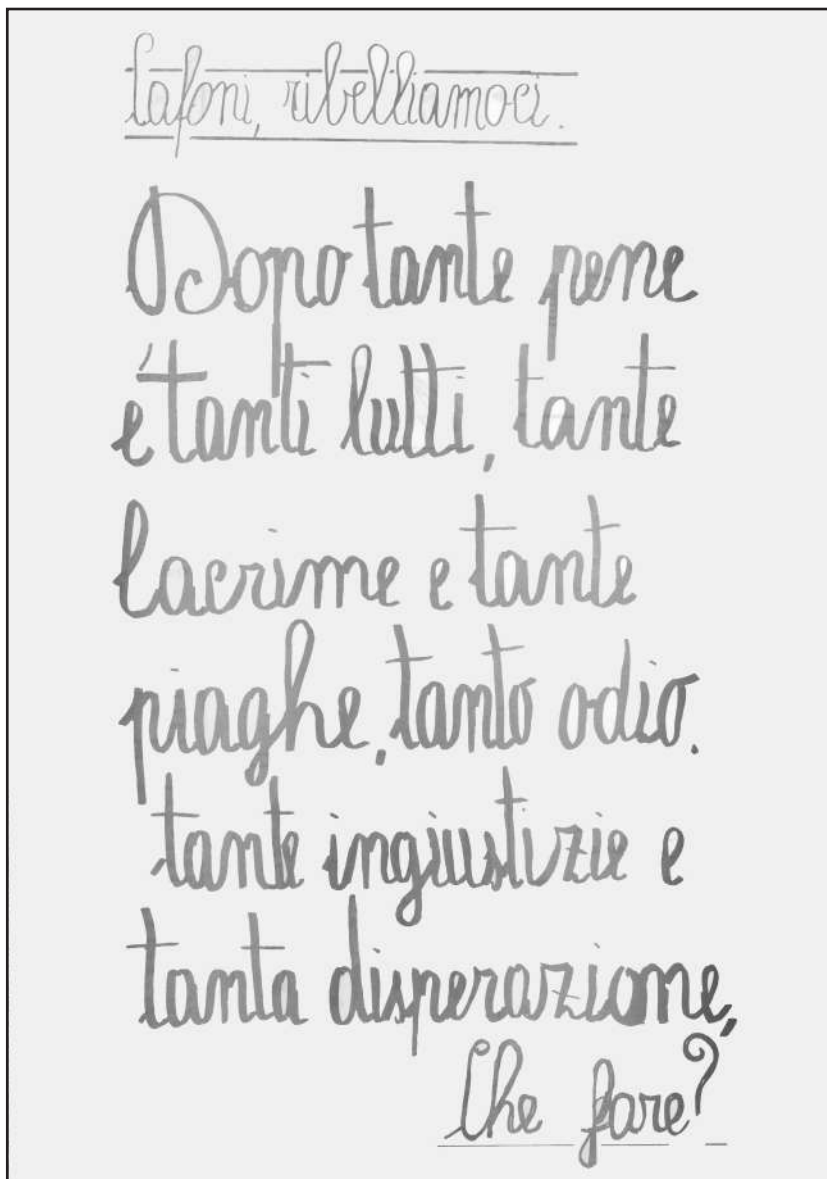 Cafoni, ribelliamoci.
Dopo tante pene
e tanti lutti, tante
lacrime e tante
piaghe, tanto odio.
tante ingiustizie e
tanta disperazione,
Che fare?